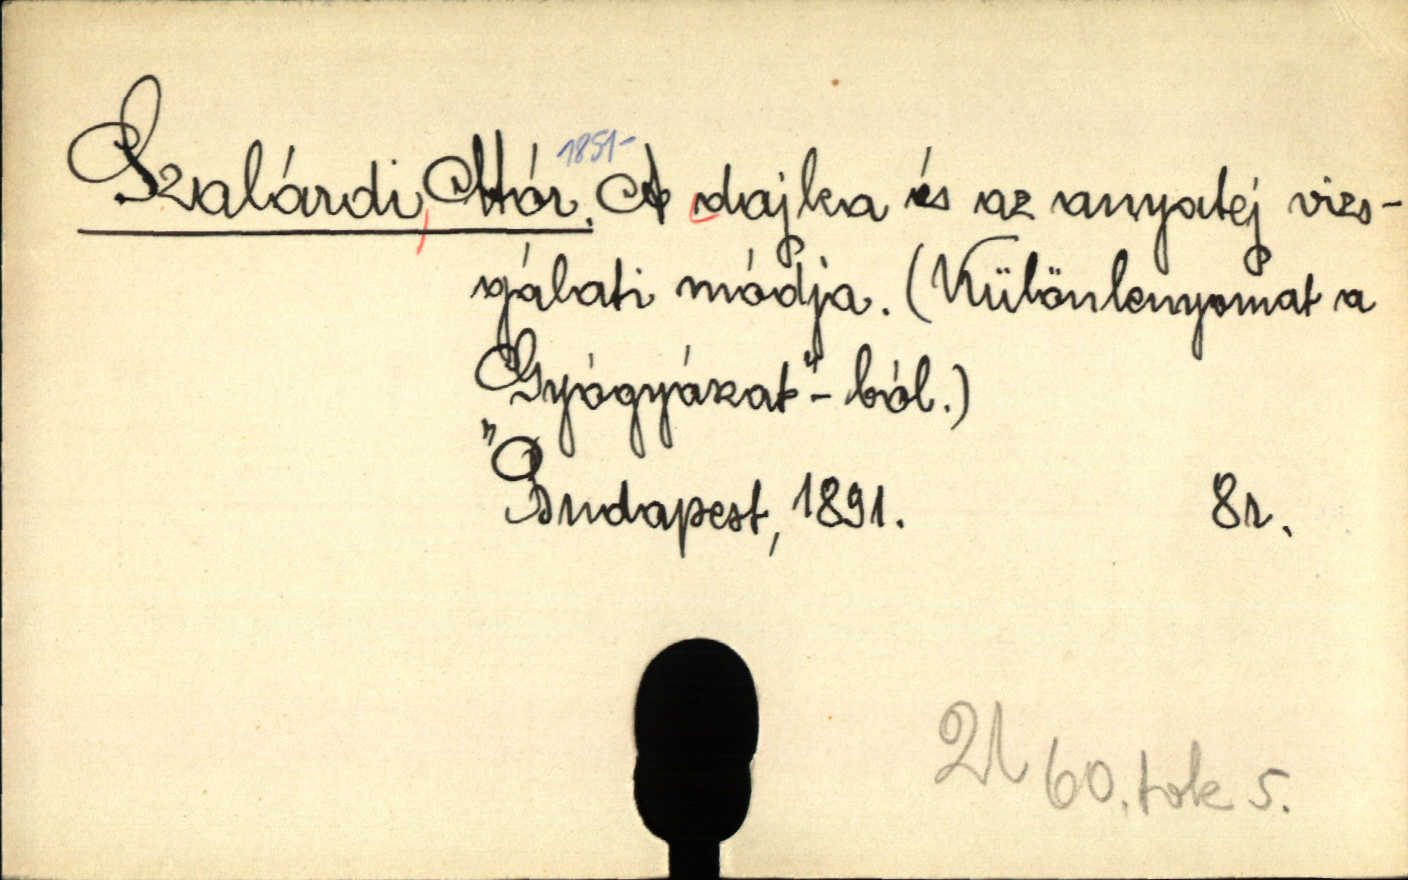 Szalárdi, Mór. 1851- A dajka és az anyatej vizs-
gálati módja. (Különlenyomat a
"Gyógyászat"-ból.)
Budapest, 1891. 8r.
60. tok 5.